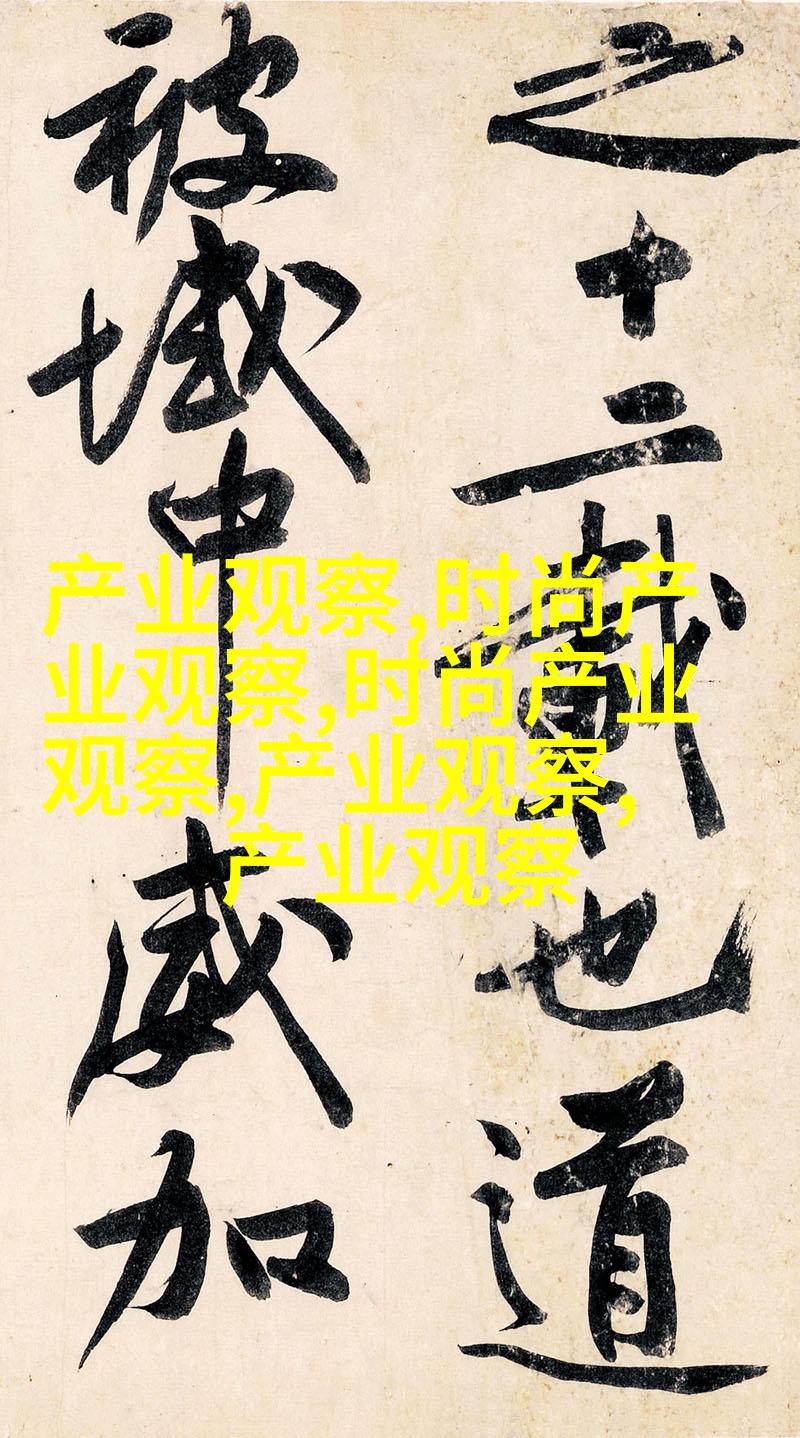 之十二載也道
被域中威加
产业观察,时尚产
业观察,时尚产业
观察,产业观察,
产业观察